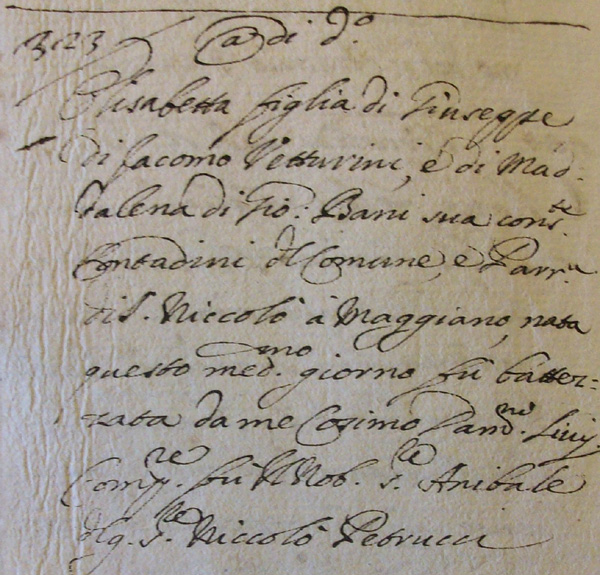 3123 adi d.º
Elisabetta figlia di Giuseppe
di Jacomo Vetturini, e di Mad-
dalena di Gio: Bani sua cons.te
Contadini del Comune, e Parr.a
di S. Niccolò à Maggiano, nata
questo med.mo giorno fù battez=
zata da me Cosimo
Comp.re fù Il Nob. S.re Anibale
S.re Niccolò Petrucci